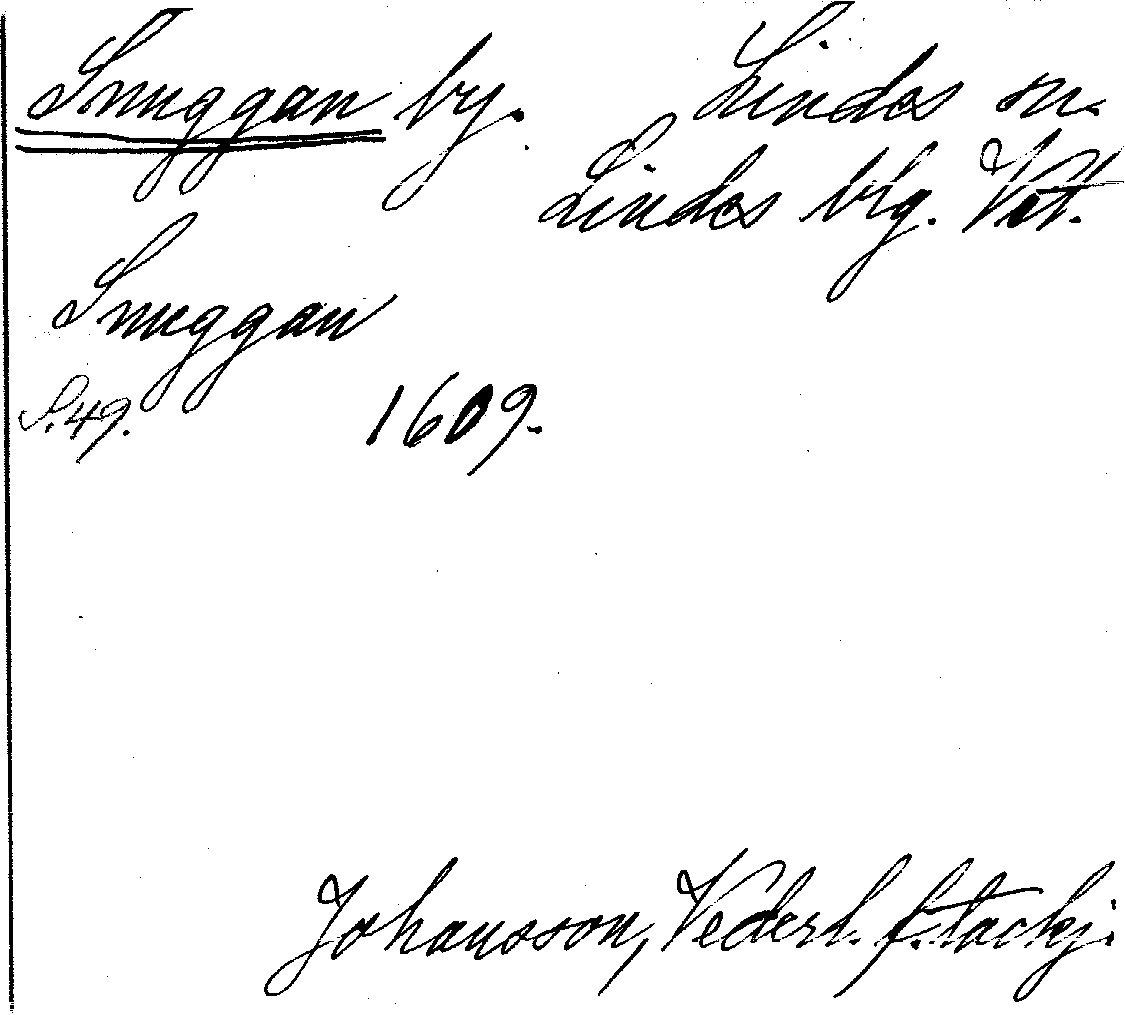 Snuggan by. Lindes sn.
Lindes blg. Vst.
Snuggan
S. 49. 1609.
Johansson, Vederl. f. tackj.